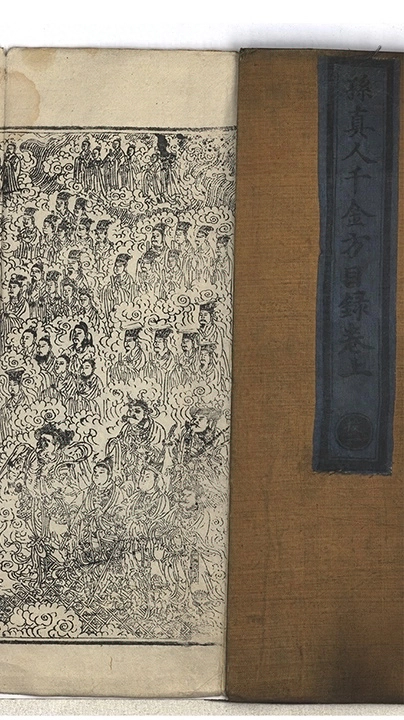 孫真人千金方目録卷上